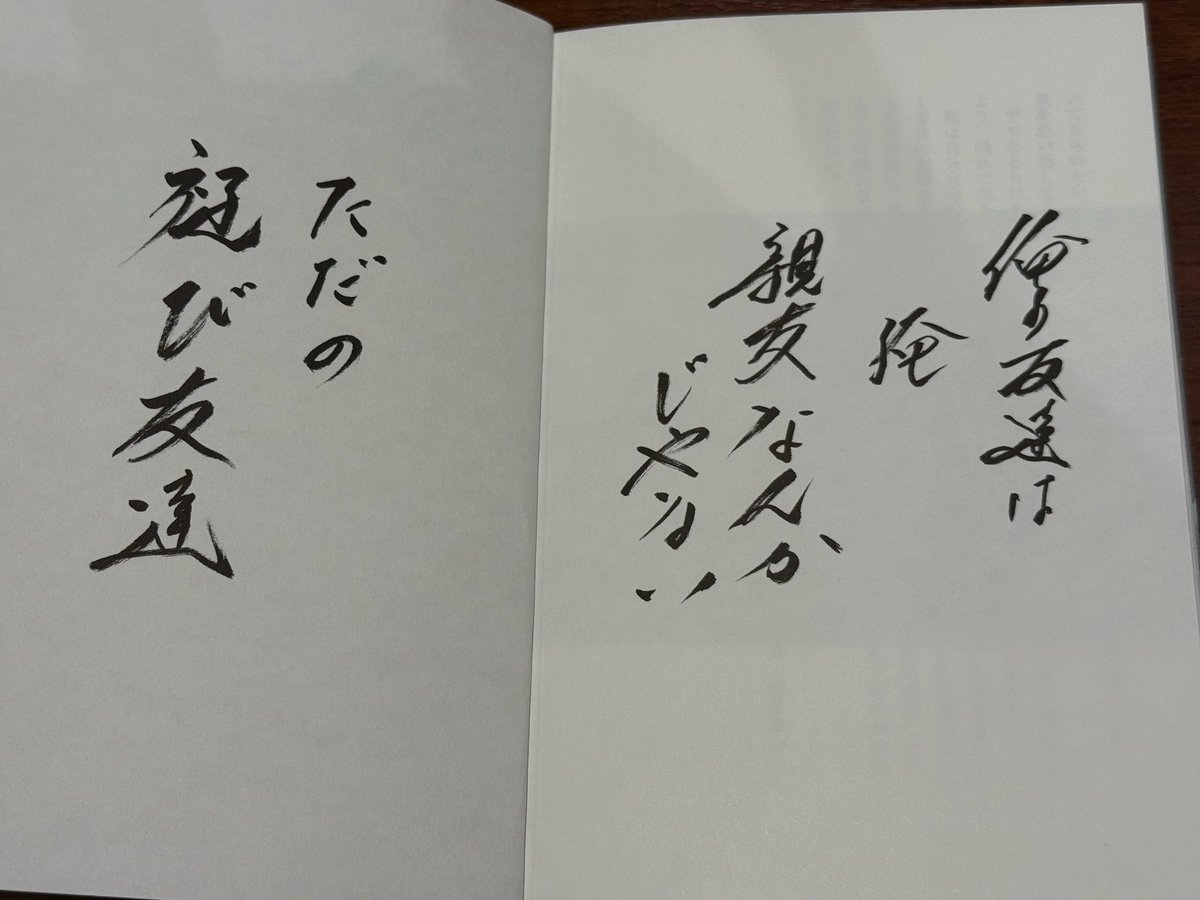 俺の友達は
俺
親友なんか
じゃない
ただの
遊び友達